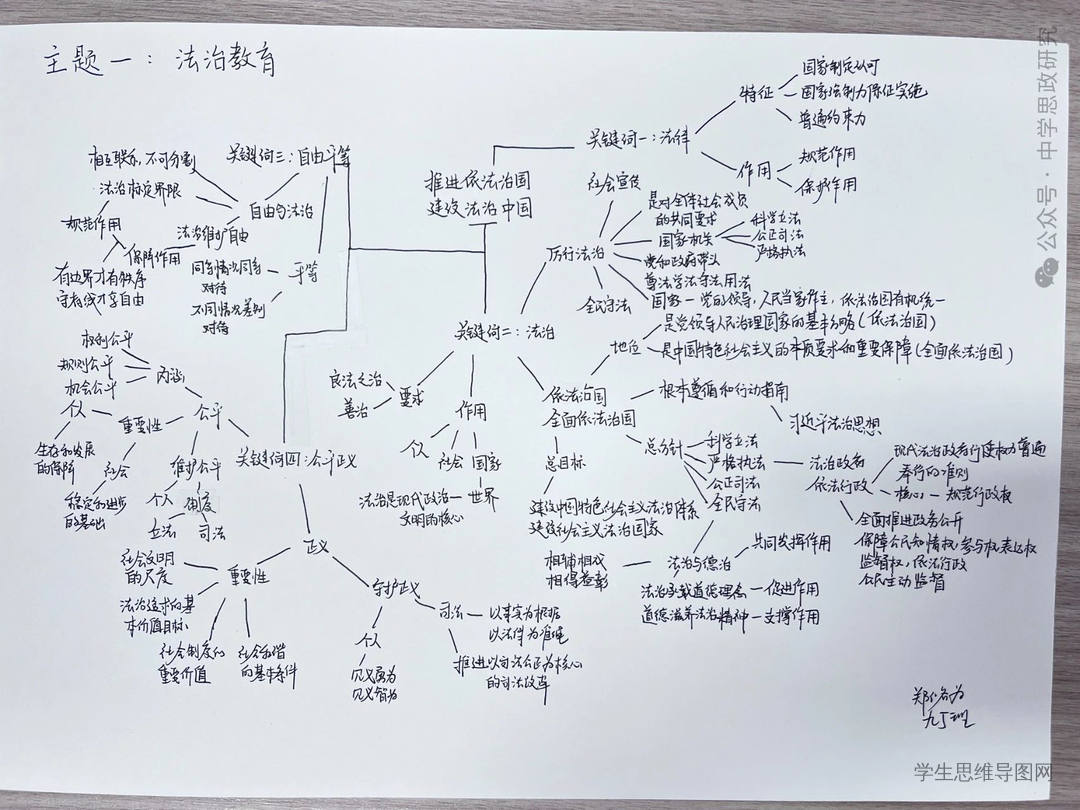 主题一：法治教育
推进依法治国
建设法治中国
关键词一：法律
特征
国家制定认可
国家强制力保证实施
普遍约束力
作用
规范作用
保护作用
关键词二：法治
厉行法治
社会宣传
是对全体社会成员
的共同要求
国家机关
科学立法
公正司法
严格执法
党和政府带头
尊法学法守法用法
全民守法
国家一党的领导，人民当家作主，依法治国有机统一
依法治国
全面依法治国
地位
是党领导人民治理国家的基本方略(依法治国)
是中国特色社会主义的本质要求和重要保障(全面依法治国)
根本遵循和行动指南
习近平法治思想
总方针
科学立法
严格执法
公正司法
全民守法
法治政府
依法行政
现代法治政府行使权力普遍
奉行的准则
核心一规范行政权
全面推进政务公开
保障公民知情权，参与权，表达权
监督权，依法行政
公民主动监督
总目标
建设中国特色社会主义法治体系
建设社会主义法治国家
法治与德治
共同发挥作用
相辅相成
相得益彰
法治承载道德理念一促进作用
道德滋养法治精神一支撑作用
要求
良法之治
善治
作用
个人
社会
国家
世界
法治是现代政治
文明的核心
关键词三：自由平等
自由与法治
相互联系，不可分割
法治标定界限
规范作用
法治维护自由
保障作用
有边界才有秩序
守底线才享自由
平等
同等情况同等
对待
不同情况差别
对待
关键词四：公平正义
公平
内涵
权利公平
规则公平
机会公平
重要性
个人
生存和发展
的保障
社会
稳定和进步
的基础
维护公平
个人
制度
立法
司法
正义
重要性
社会文明
的尺度
法治追求的基
本价值目标
社会制度的
重要价值
社会和谐
的基本条件
守护正义
个人
见义勇为
见义智为
司法
以事实为根据
以法律为准绳
推进以司法公正为核心
的司法改革
九丁班
公众号·中学思政研究
学生思维导图网